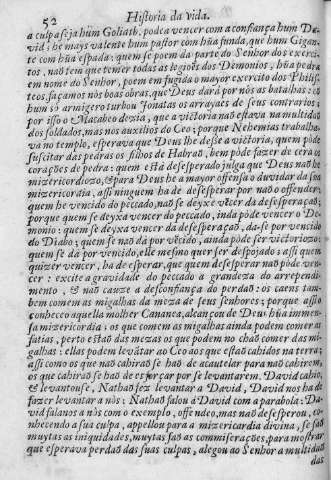 52 Historia da Vida.
a culpa seja hũm Goliath, poden vencer com a confiança hum Da-
vid; he mays valente hum pastor com hũa funda, que hum Gigan-
te com hũa espada: quem se poem da parte do Senhor dos exerci-
tos, naõ tem que temer todas as legioẽs dos Demonios, hũa pedra
em nome do Senhor, poem em fugida o mayor exercito dos Philis-
teos, façamos nòs boas obras, que Deus darà por nòs as batalhas:
hum sò armigero turbou Jonatas os arrayaes de seus contrarios;
por isso o Macabeo dezia, que a victoria naõ estava na multidaõ
dos soldados, mas nos auxilios do Ceo; porque Nehemias trabalha-
va no templo, esperava que Deus lhe desse a victoria, quem pòde
suscitar das pedras os filhos de Habraõ, bem pòde fazer de cera os
coraçoẽs de pedra: quem està desesperado julga que Deus naõ he
misericordioso, & para Deus he a mayor offensa o duvidar da sua
misericordia, assi ninguem ha de desesperar por naõ o offender;
quem he vencido do peccado, naõ se deyxe vẽcer da desesperaçaõ;
porque quem se deyxa vencer do peccado, inda pòde vencer o De-
monio: quem se deyxa vencer da desesperaçaõ, dà-se por vencido
do Diabo; quem se naõ dà por vẽcido, ainda pòde ser victorioso;
quem se dà por vencido, elle mesmo quer ser despojado: assi quem
quizer vencer, ha de esperar, que quem desesperar naõ pòde ven-
cer: excite a gravidade do peccado a grandeza do arrependi-
mento, & naõ cauze a desconfiança do perdaõ: os caens tam-
bem comem as migalhas da meza de seus senhores; porque assi o
conheceo aquella molher Cananea, alcançou de Deus hũa immen-
sa misericordia; os que comtem as migalhas ainda podem comer as
fatias, perto estaõ das mezas os que podem no chaõ comer das mi-
galhas: ellas podem levãtar ao Ceo aos que estaõ cahidos na terra;
assi como os que naõ cahiraõ se haõ de acautelar para naõ cahirem,
os que cahiraõ se haõ de esforçar por se levantarem. David cahio,
& levantouse, Nathaõ fez levantar a David, David nos ha de
fazer levantar a nòs: Nathaõ falou a David com a parabola: Da-
vid falanos a nòs com o exemplo, offendeo, mas naõ desesperou, co-
nhecendo a sua culpa, appellou para a misericordia divina, se saõ
muytas as iniquidades, muytas saõ as commiseraçoẽs, para mostrar
que esperava perdaõ das suas culpas, alegou ao Senhor a multidaõ
das